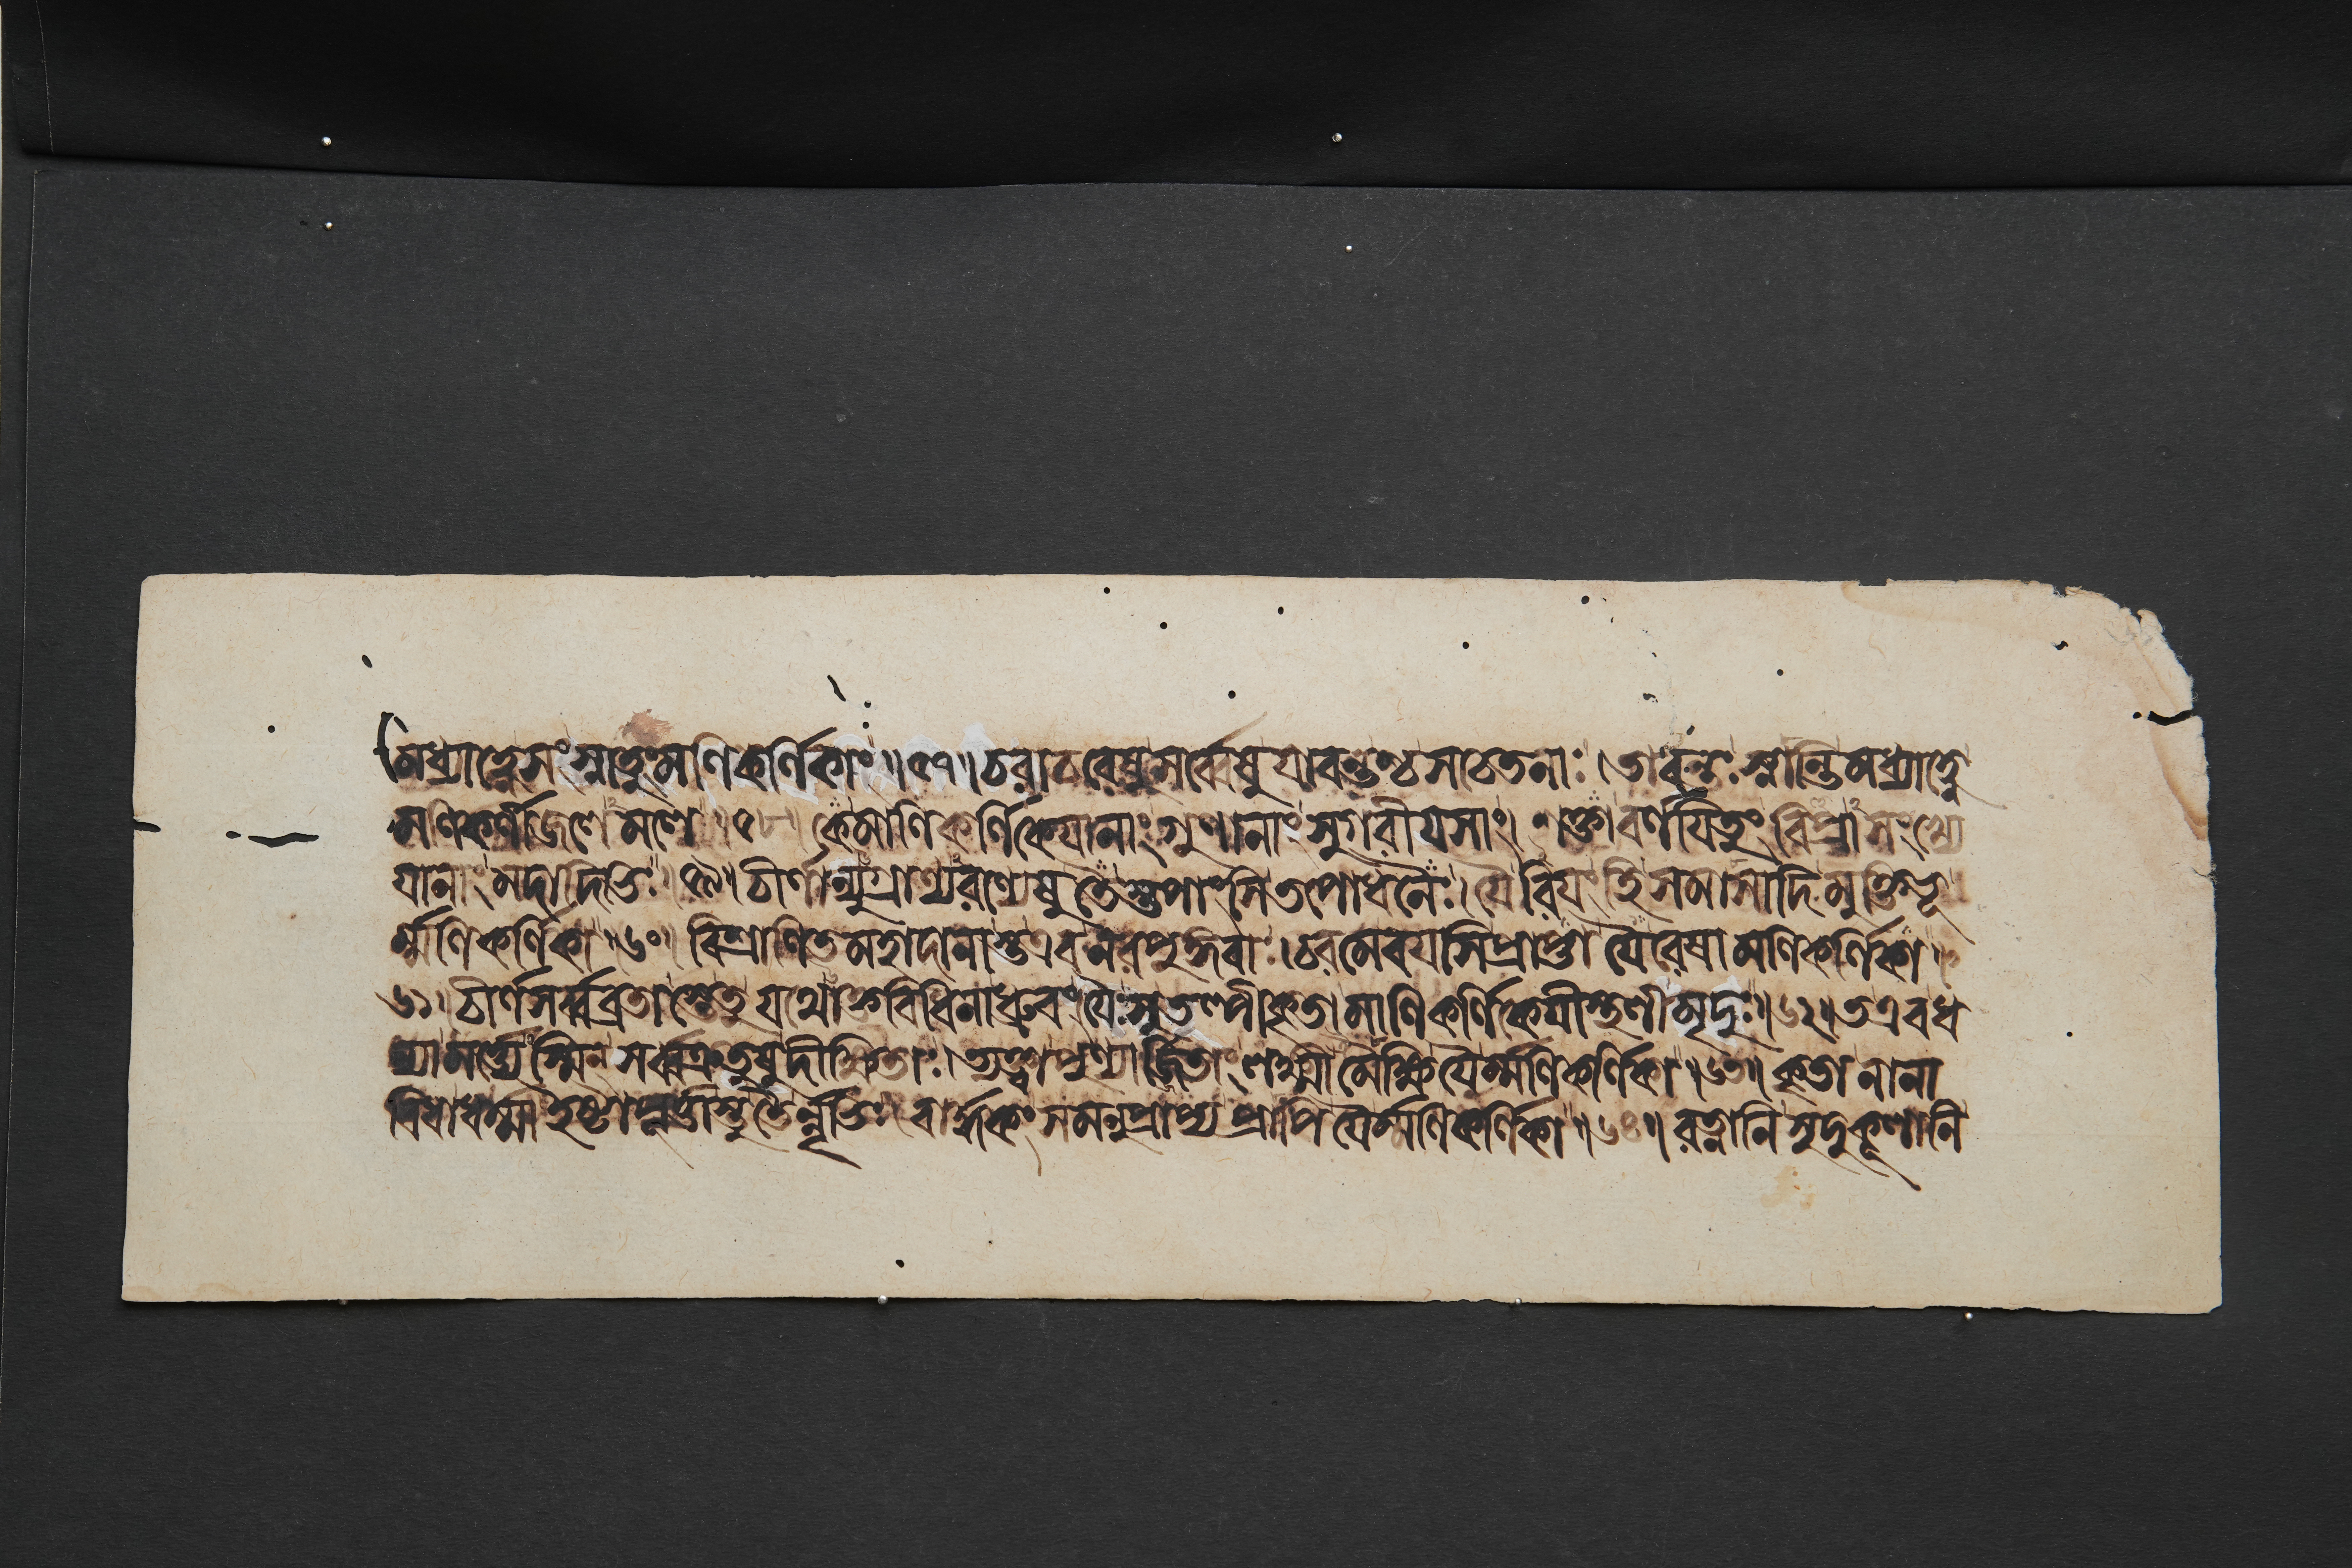 মধ্যাহ্নেসংস্নাতুংমণিকর্ণিকাং॥৫৭॥চরাচরেষুসর্ব্বেষুযাবন্তশ্চসচেতনাঃ।তাবন্তঃস্নান্তিমধ্যাহ্নে
মণিকর্ণীজলেমলে॥৫৮॥কেমাণিকর্ণিকেযানাংগুণানাংসুগরীযসাং।শক্তাবর্ণযিতুংবিপ্রাসংখ্যে
যানাংমদাদিভিঃ॥৫৯॥চীর্ণান্যুগ্রাণ্যরণ্যেষুতৈস্তপাংসিতপোধনৈঃ।যৈরিযংহিসমাসাদিমুক্তিভূ
র্ম্মণিকর্ণিকা॥৬০॥বিশ্রাণিতমহাদানাস্তএবনরপুঙ্গবাঃ।চরমেবযসিপ্রাপ্তা যৈরেষামণিকর্ণিকা॥
৬১॥চীর্ণসর্ব্বব্রতাস্তেতুযথোক্তবিধিনাধ্রুবং।যৈঃস্বতল্পীকৃতামাণিকর্ণিকেযীস্থলীমৃদুঃ॥৬২॥তএবধ
ন্যামর্ত্যেস্মিনসর্ব্বক্রতুষুদীক্ষিতাঃ।ত্যক্ত্বাপুণ্যার্জ্জিতাংলক্ষ্মীমৈক্ষিযৈর্ম্মণিকর্ণিকা॥৬৩॥কৃতানানা
বিধাধর্ম্মাইষ্টাপূর্ত্তাস্তুতৈর্নৃভিঃ।বার্দ্ধকংসমনুপ্রাপ্যপ্রাপিযৈর্ম্মণিকর্ণিকা॥৬৪॥রত্নানিসুদুকূলানি